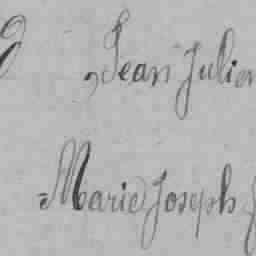 Jean Julien
=Marie Joseph